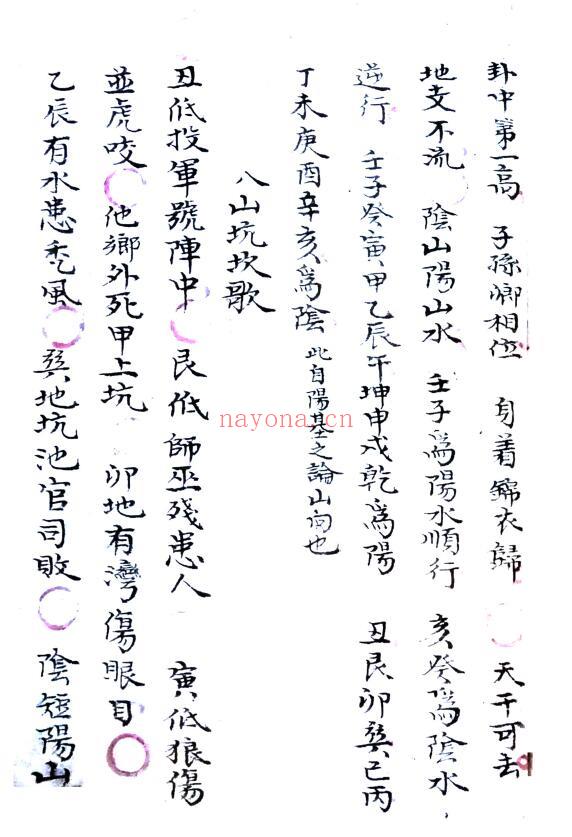 卦中第一高　子孫卿相位　身着錦衣歸　天干可去
地支不流　陰山陽山水　壬子爲陽水順行　亥癸爲陰水
逆行　壬子癸寅甲乙辰午坤申戌乾爲陽　丑艮卯巽巳丙
丁未庚酉辛亥爲陰　此自陽基之論山向也
八山坑坎歌
丑低投軍號陣中　艮低師巫殘患人　寅低狼傷
並虎咬　他鄉外死甲上坑　卯地有灣傷眼目
乙辰有水患風　巽地坑池官司敗　陰短陽山
nayona.cn